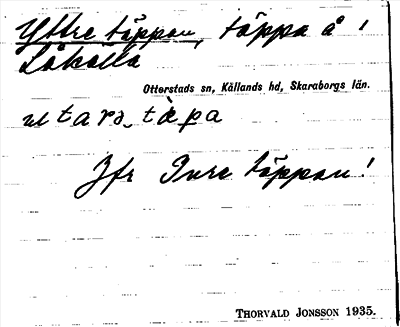 Yttre täppan, täppa å 1
Låkälla
Otterstads sn, Kållands hd, Skaraborgs län.
utarə täpa
Jfr Inre täppan!
THORVALD JONSSON 1935.